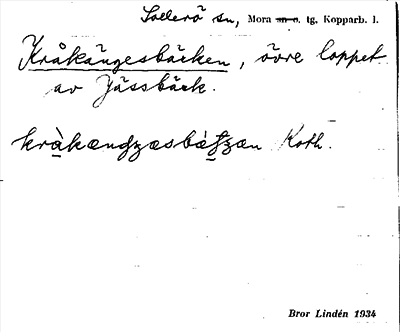 Sollerö sn, Mora sn o. tg, Kopparb. l.
Kråkängesbäcken, övre loppet
av Jässbäck.
kràkænʤæsbæ̀ʧæn Koth.
Bror Lindén 1934